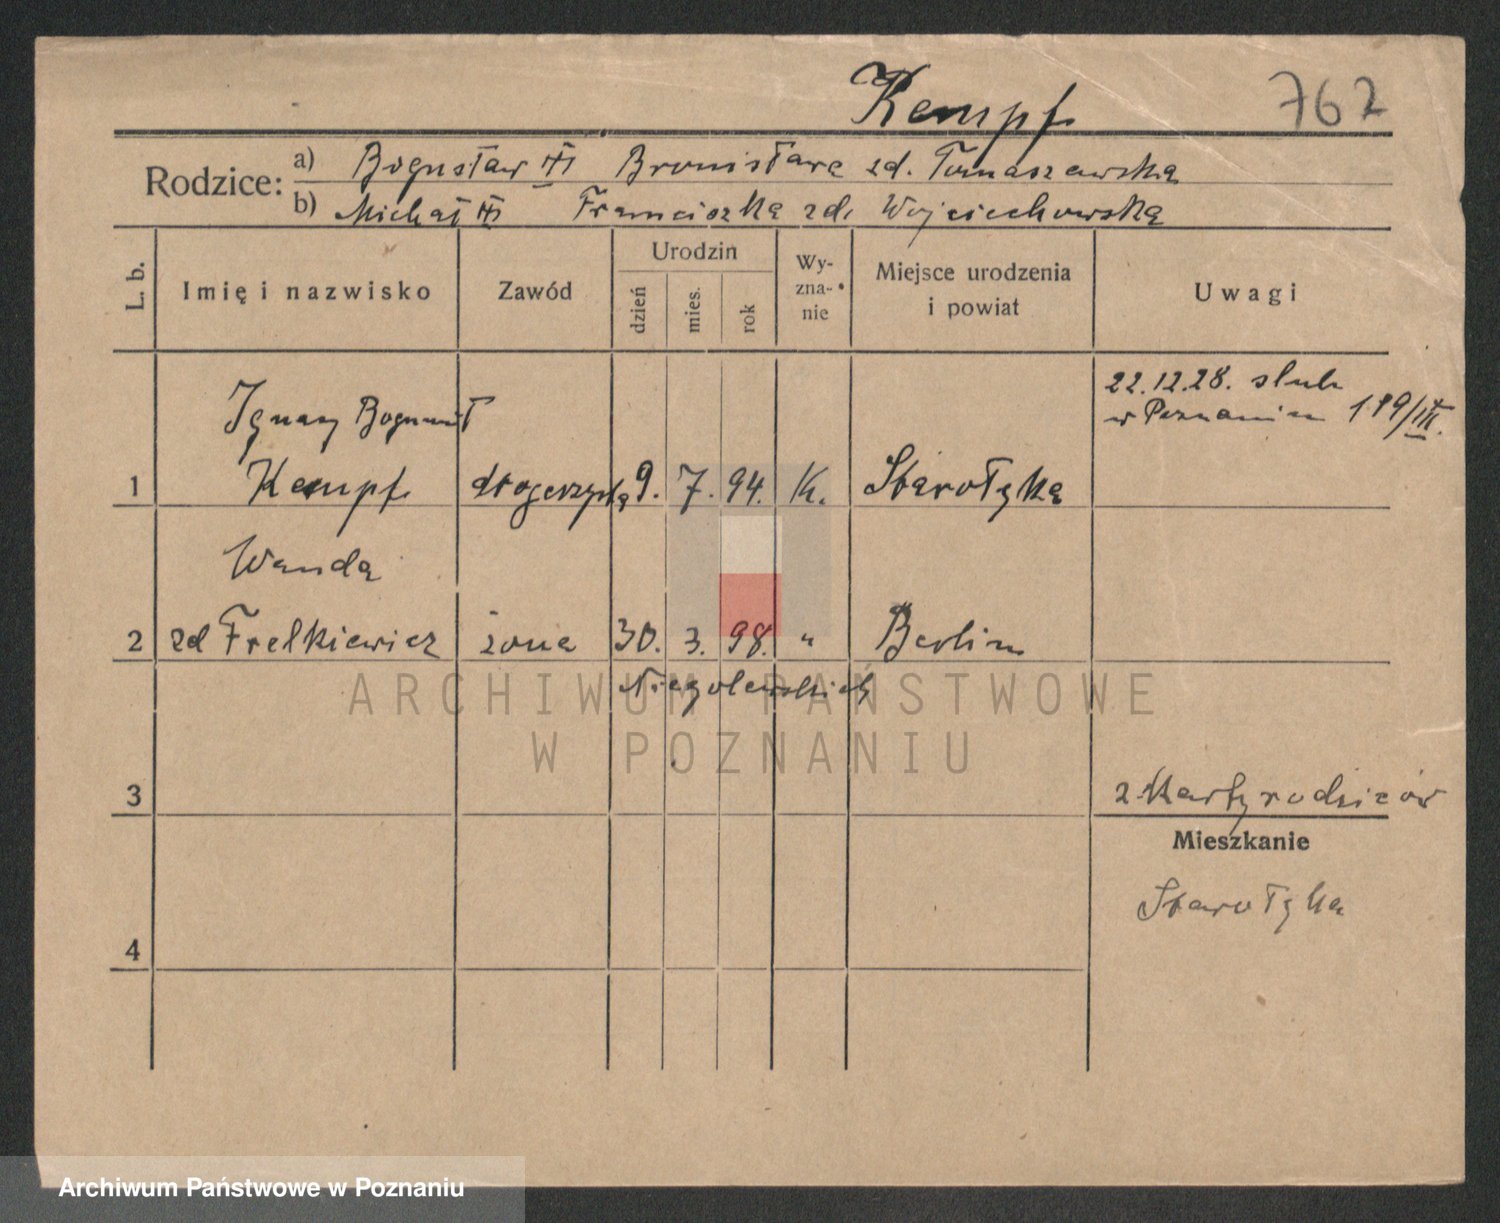 Kempf
762
Rodzice:
a) Bogusław Bronisława zd. Tomaszewska
b) Michał Franciszka zd. Wojciechowska
L. b.
Imię i nazwisko
Zawód
Urodzin
dzień
mies.
rok
Wy-
zna-
nie
Miejsce urodzenia
i powiat
Uwagi
22.12.28. ślub
w Poznaniu 119/III.
Ignacy Bogumił
1 Kempf drogerzysta 9. 7. 94. K. Starołęka
Wanda
2 zd Frelkiewicz żona 30. 3. 98. " Berlin
Niegolewskich
ARCHIWUM PAŃSTWOWE
W POZNANIU
3
z karty rodziców
Mieszkanie
Starołęka
4
Archiwum Państwowe w Poznaniu